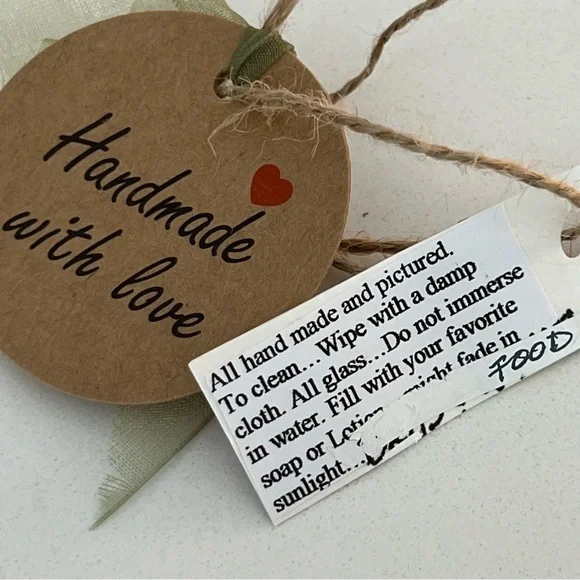 Handmade
with love
All hand made and pictured.
To clean...Wipe with a damp
cloth. All glass...Do not immerse
in water. Fill with your favorite
soap or Lotion might fade in
sunlight...
FOOD